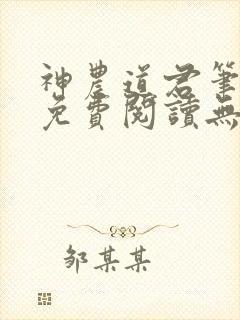 神農道君筆
免費閱讀無
鄒某某